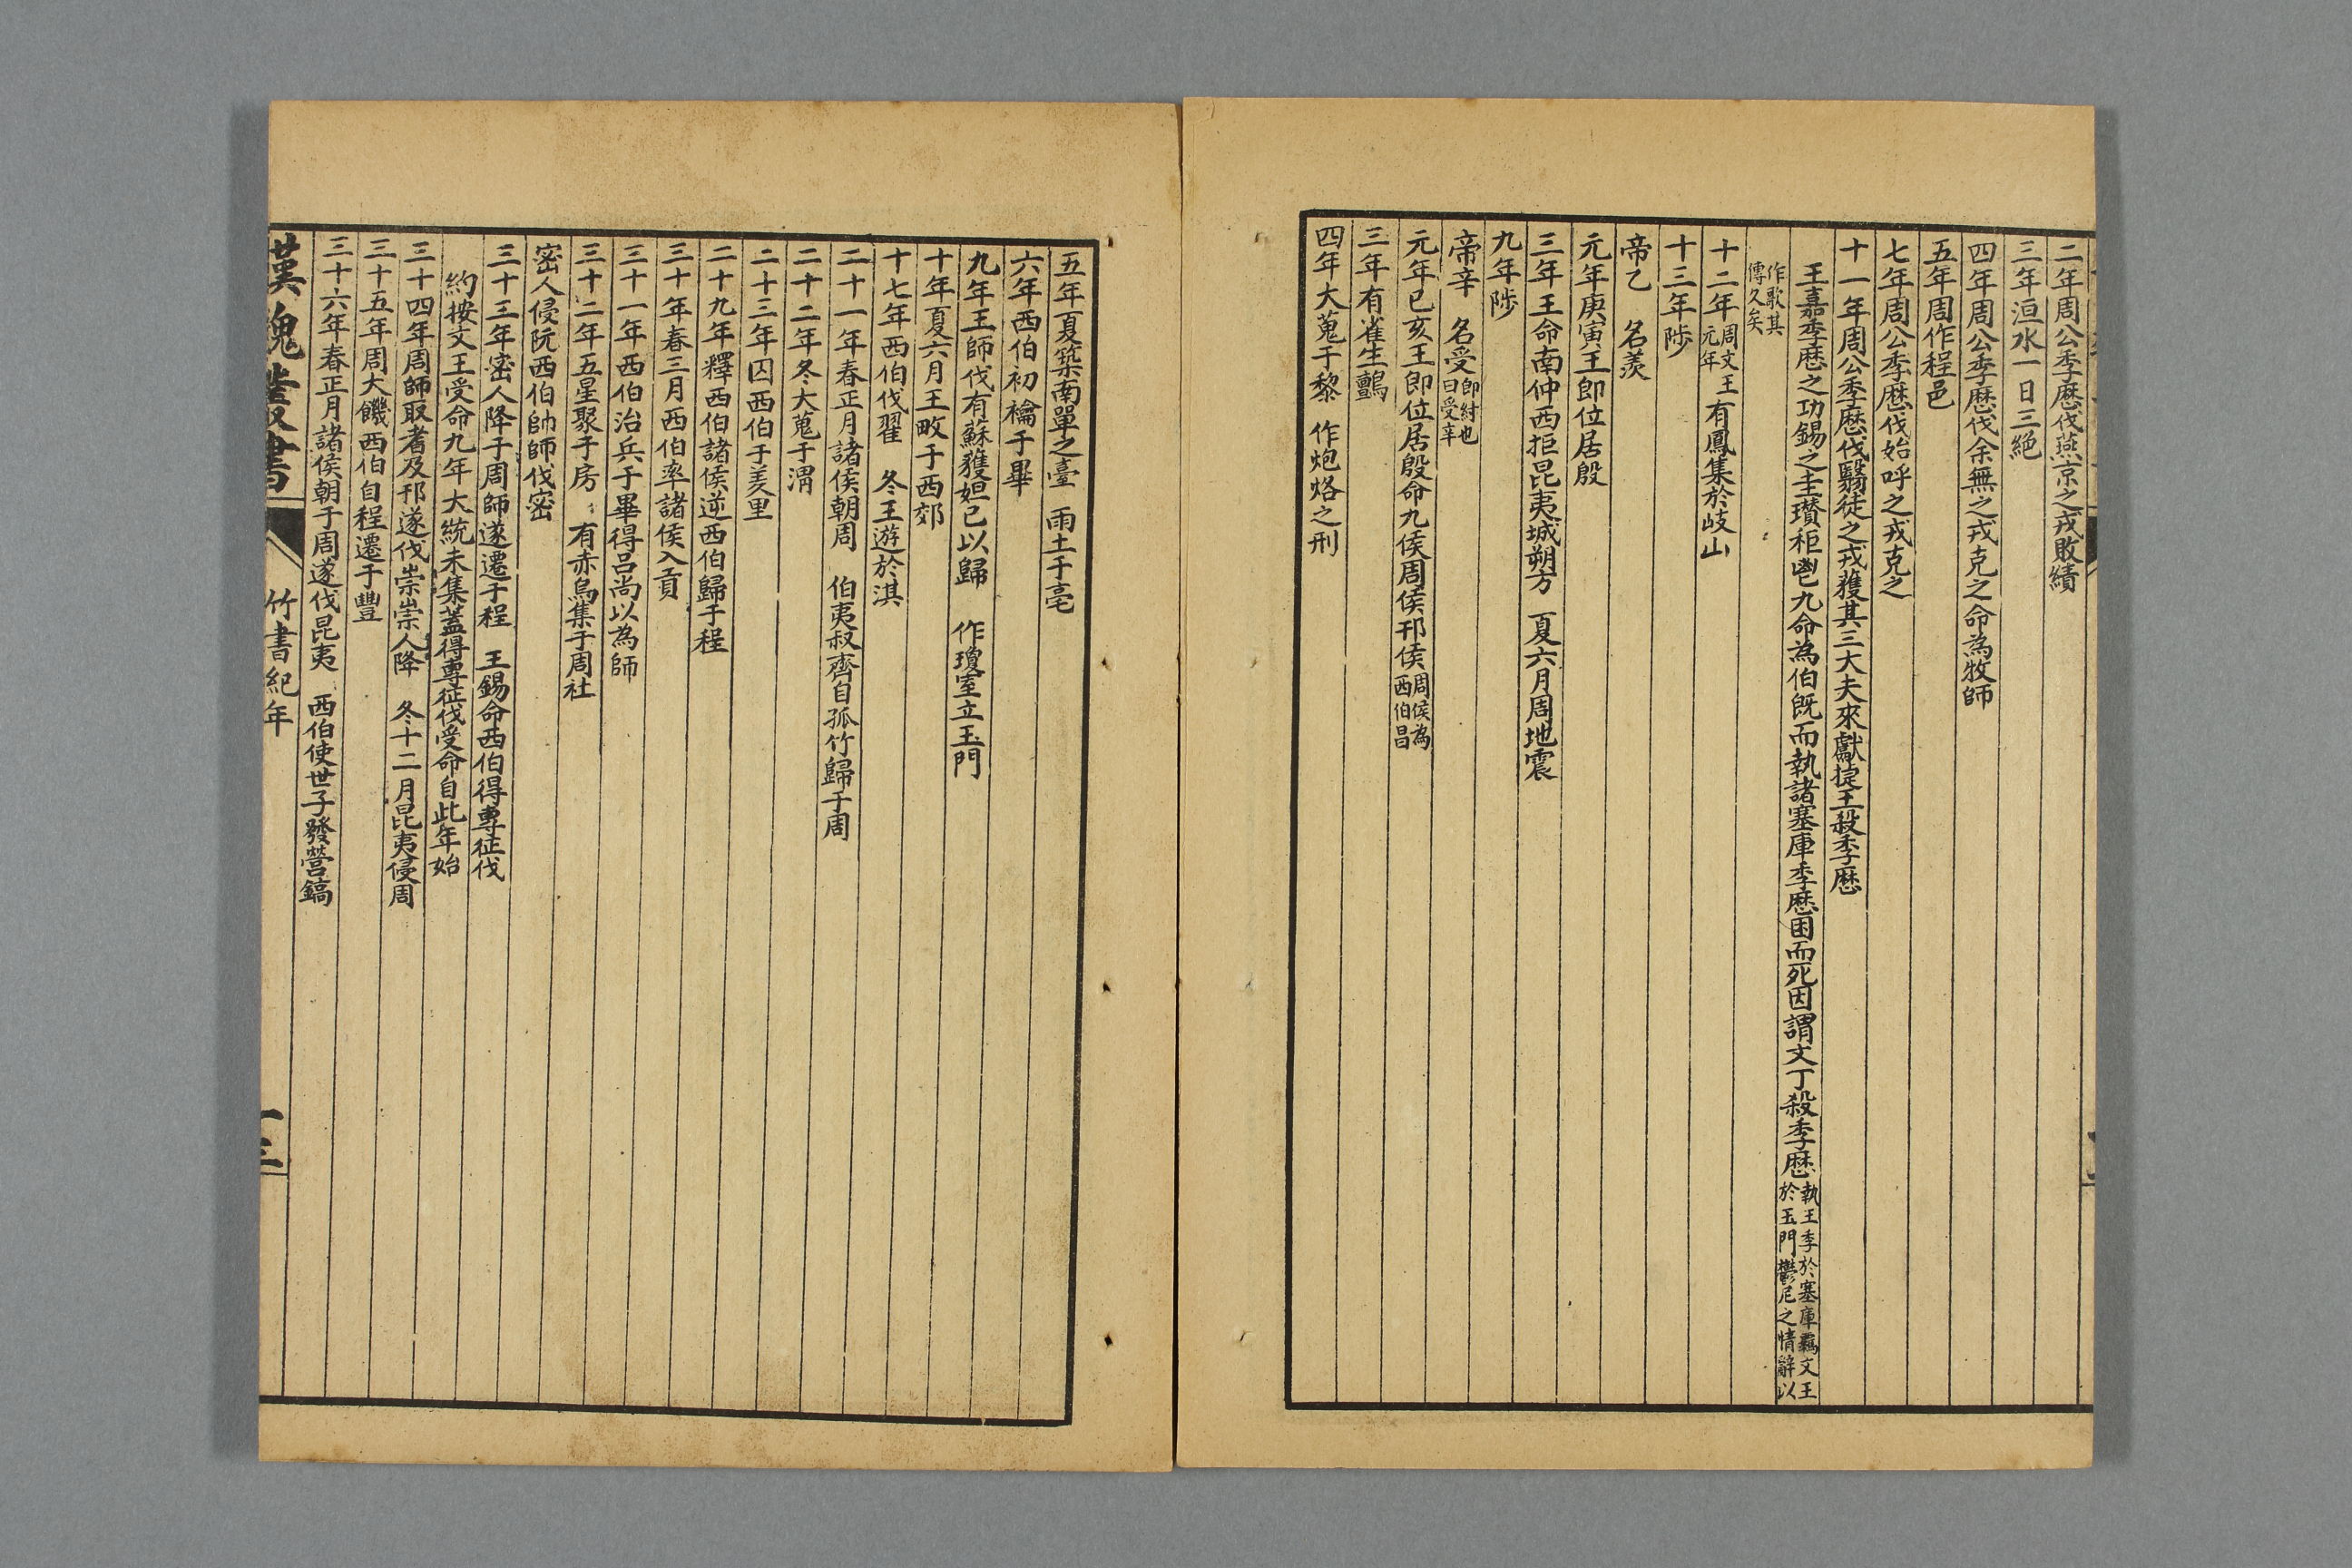 二年周公季歷伐燕京之戎敗績
三年洹水一日三絕
四年周公季歷伐余無之戎克之命為牧師
五年周作程邑
七年周公季歷伐始呼之戎克之
十一年周公季歷伐翳徒之戎獲其三大夫來獻捷王殺季歷
王嘉季歷之功錫之圭瓚秬鬯九命為伯既而執諸塞庫季歷困而死因謂文丁殺季歷執王季於塞庫羈文王於玉門鬱尼之情辭以
作歌其傳久矣
十二年周文王元年有鳳集於岐山
十三年陟
帝乙　名羨
元年庚寅王即位居殷
三年王命南仲西拒昆夷城朔方　夏六月周地震
九年陟
帝辛　名受即紂也曰受辛
元年已亥王即位居殷命九侯周侯邘侯周侯為西伯昌
三年有雀生鸇
四年大蒐于黎　作炮烙之刑
五年夏築南單之臺　雨土于亳
六年西伯初禴于畢
九年王師伐有蘇獲妲己以歸　作瓊室立玉門
十年夏六月王畋于西郊
十七年西伯伐翟　冬王遊於淇
二十一年春正月諸侯朝周　伯夷叔齊自孤竹歸于周
二十二年冬大蒐于渭
二十三年囚西伯于羑里
二十九年釋西伯諸侯逆西伯歸于程
三十年春三月西伯率諸侯入貢
三十一年西伯治兵于畢得呂尚以為師
三十二年五星聚于房　有赤烏集于周社
密人侵阮西伯帥師伐密
三十三年密人降于周師遂遷于程　王錫命西伯得專征伐
約按文王受命九年大統未集蓋得專征伐受命自此年始
三十四年周師取耆及邘遂伐崇崇人降　冬十二月昆夷侵周
三十五年周大饑西伯自程遷于豐
三十六年春正月諸侯朝于周遂伐昆夷　西伯使世子發營鎬
漢魏叢書　竹書紀年　十三